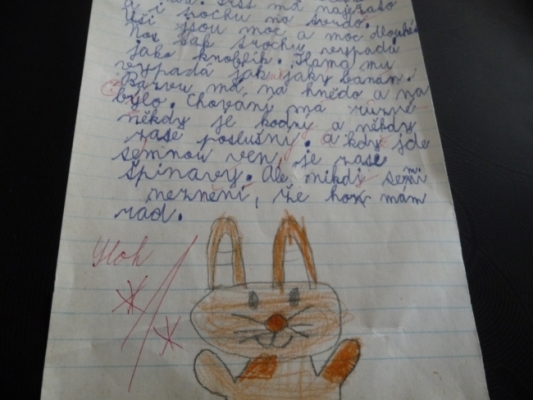 má najraso
i trochu na tvrdo.
Uši jsou moc a moc dlouhé
Nos tak trochu vypadá
jako knoblík. Hlama mu
vypadá jak jaky banán.
Barvu má na hnědo a na
býlo. Chovani má ruzné
někdy je hodný a někdy
zase poslušní. a kdy jde
semnou ven, je zase
špinavy. Ale nikdi semi
nezmění, že ho mám
rad.
Sloh